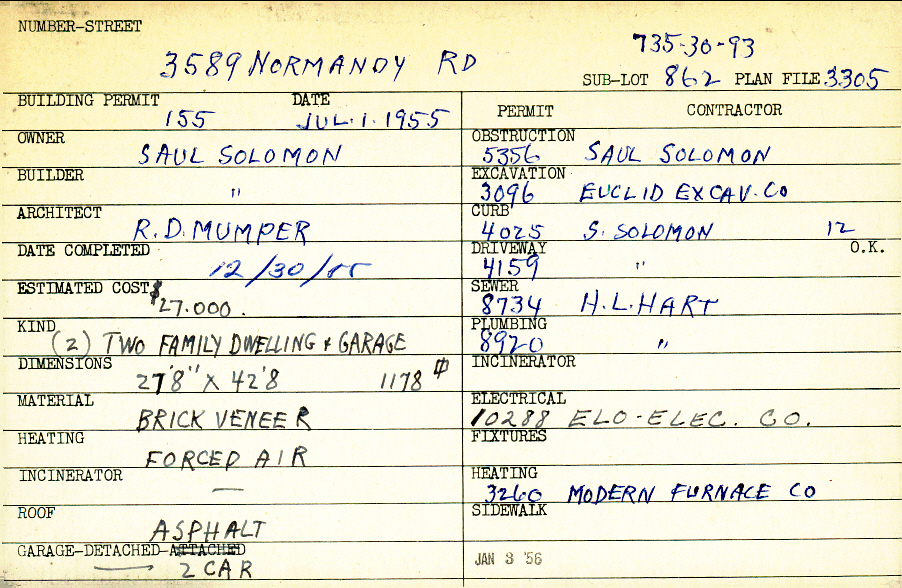 NUMBER-STREET
735-30-93
3589 NORMANDY RD
SUB-LOT 862 PLAN FILE 3305
BUILDING PERMIT DATE
155 JUL. 1. 1955
OWNER
SAUL SOLOMON
BUILDER
"
ARCHITECT
R.D. MUMPER
DATE COMPLETED
12/30/55
ESTIMATED COST $
27.000.
KIND
(2) TWO FAMILY DWELLING & GARAGE
DIMENSIONS
27'8" X 42'8 1178
MATERIAL
BRICK VENEER
HEATING
FORCED AIR
INCINERATOR
—
ROOF
ASPHALT
GARAGE-DETACHED-ATTACHED
2 CAR
PERMIT CONTRACTOR
OBSTRUCTION
5356 SAUL SOLOMON
EXCAVATION
3096 EUCLID EXCAV. CO
CURB
4025 S. SOLOMON 12
DRIVEWAY O.K.
4159 "
SEWER
8734 H.L. HART
PLUMBING
8920 "
INCINERATOR
ELECTRICAL
10288 ELO-ELEC. CO.
FIXTURES
HEATING
3260 MODERN FURNACE CO
SIDEWALK
JAN 3 '56